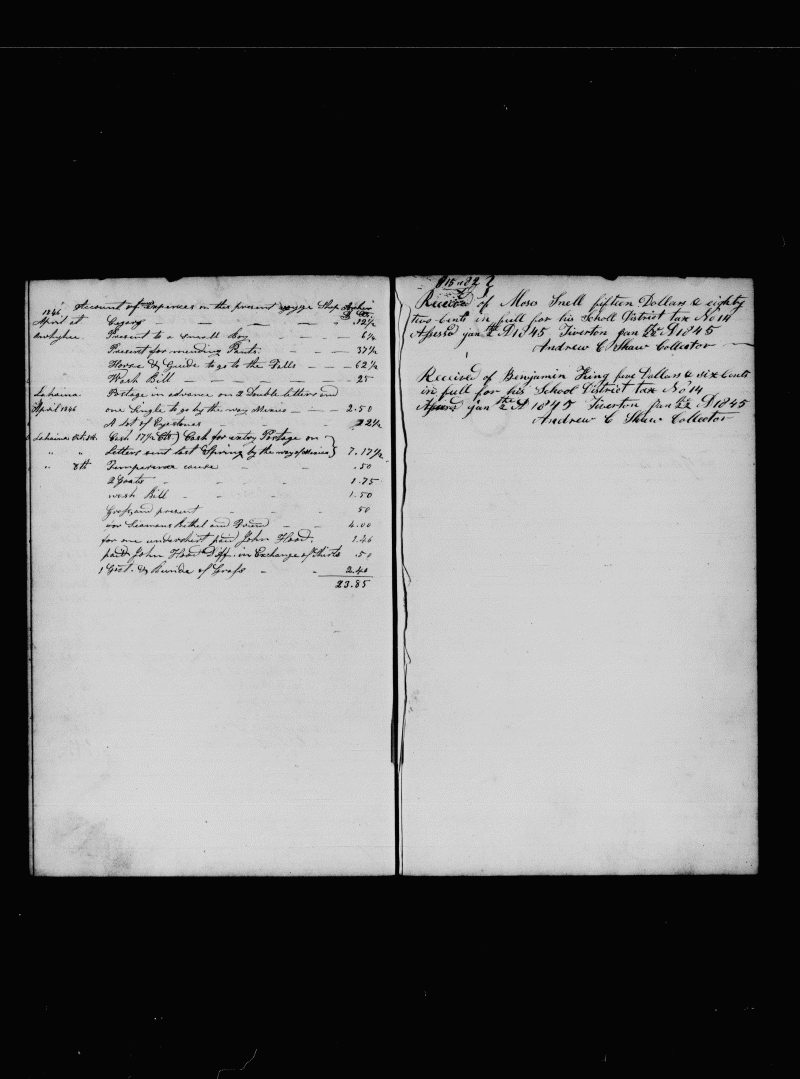 Account of Expences on this present voyge Ship
1846 D Cts
April at Cegars — — — — — " .12½
owhyhee Present to a small Boy — — — 6¼
Present for mending Pants — — — 37½
Horse & Guide to go to the Falls — — 62½
Wash Bill — — — — — 25
Lahaina Postage in advance on 2 Double letters and
April 1846 one Single to go by the way Mexico — — — 2.50
A Lot of — — — — 22½
Lahaina Oct Cash 17½ Cts) Cash for extry Postage on
" " Letters sent last Spring by the way of Mexico } 7.17½
" 8th Temperance cause - - - .50
2 Goats - - - - 1.75
wash Bill - - - - 1.50
and present - - - 50
for Seamans Bethel and Friend - - 4.00
for one undershirt paid John Hood. 1.46
paid John Hood Diff. in Exchange of Shirts .50
1 & Bundle of Grass - - 2.40
23.85
$15 " 82
Received of Moses Snell fifteen Dollars & eighty
two Cents in full for his Scholl District tax No 14
Apessd jan A D 1845 Tiverton jan A D 1845
Andrew C Shaw Collector
Received of Benjamin King five Dollars & six Cents
in full for his School District tax No 14
jan A D 1845 Tiverton jan 22 A D 1845
Andrew C Shaw Collector